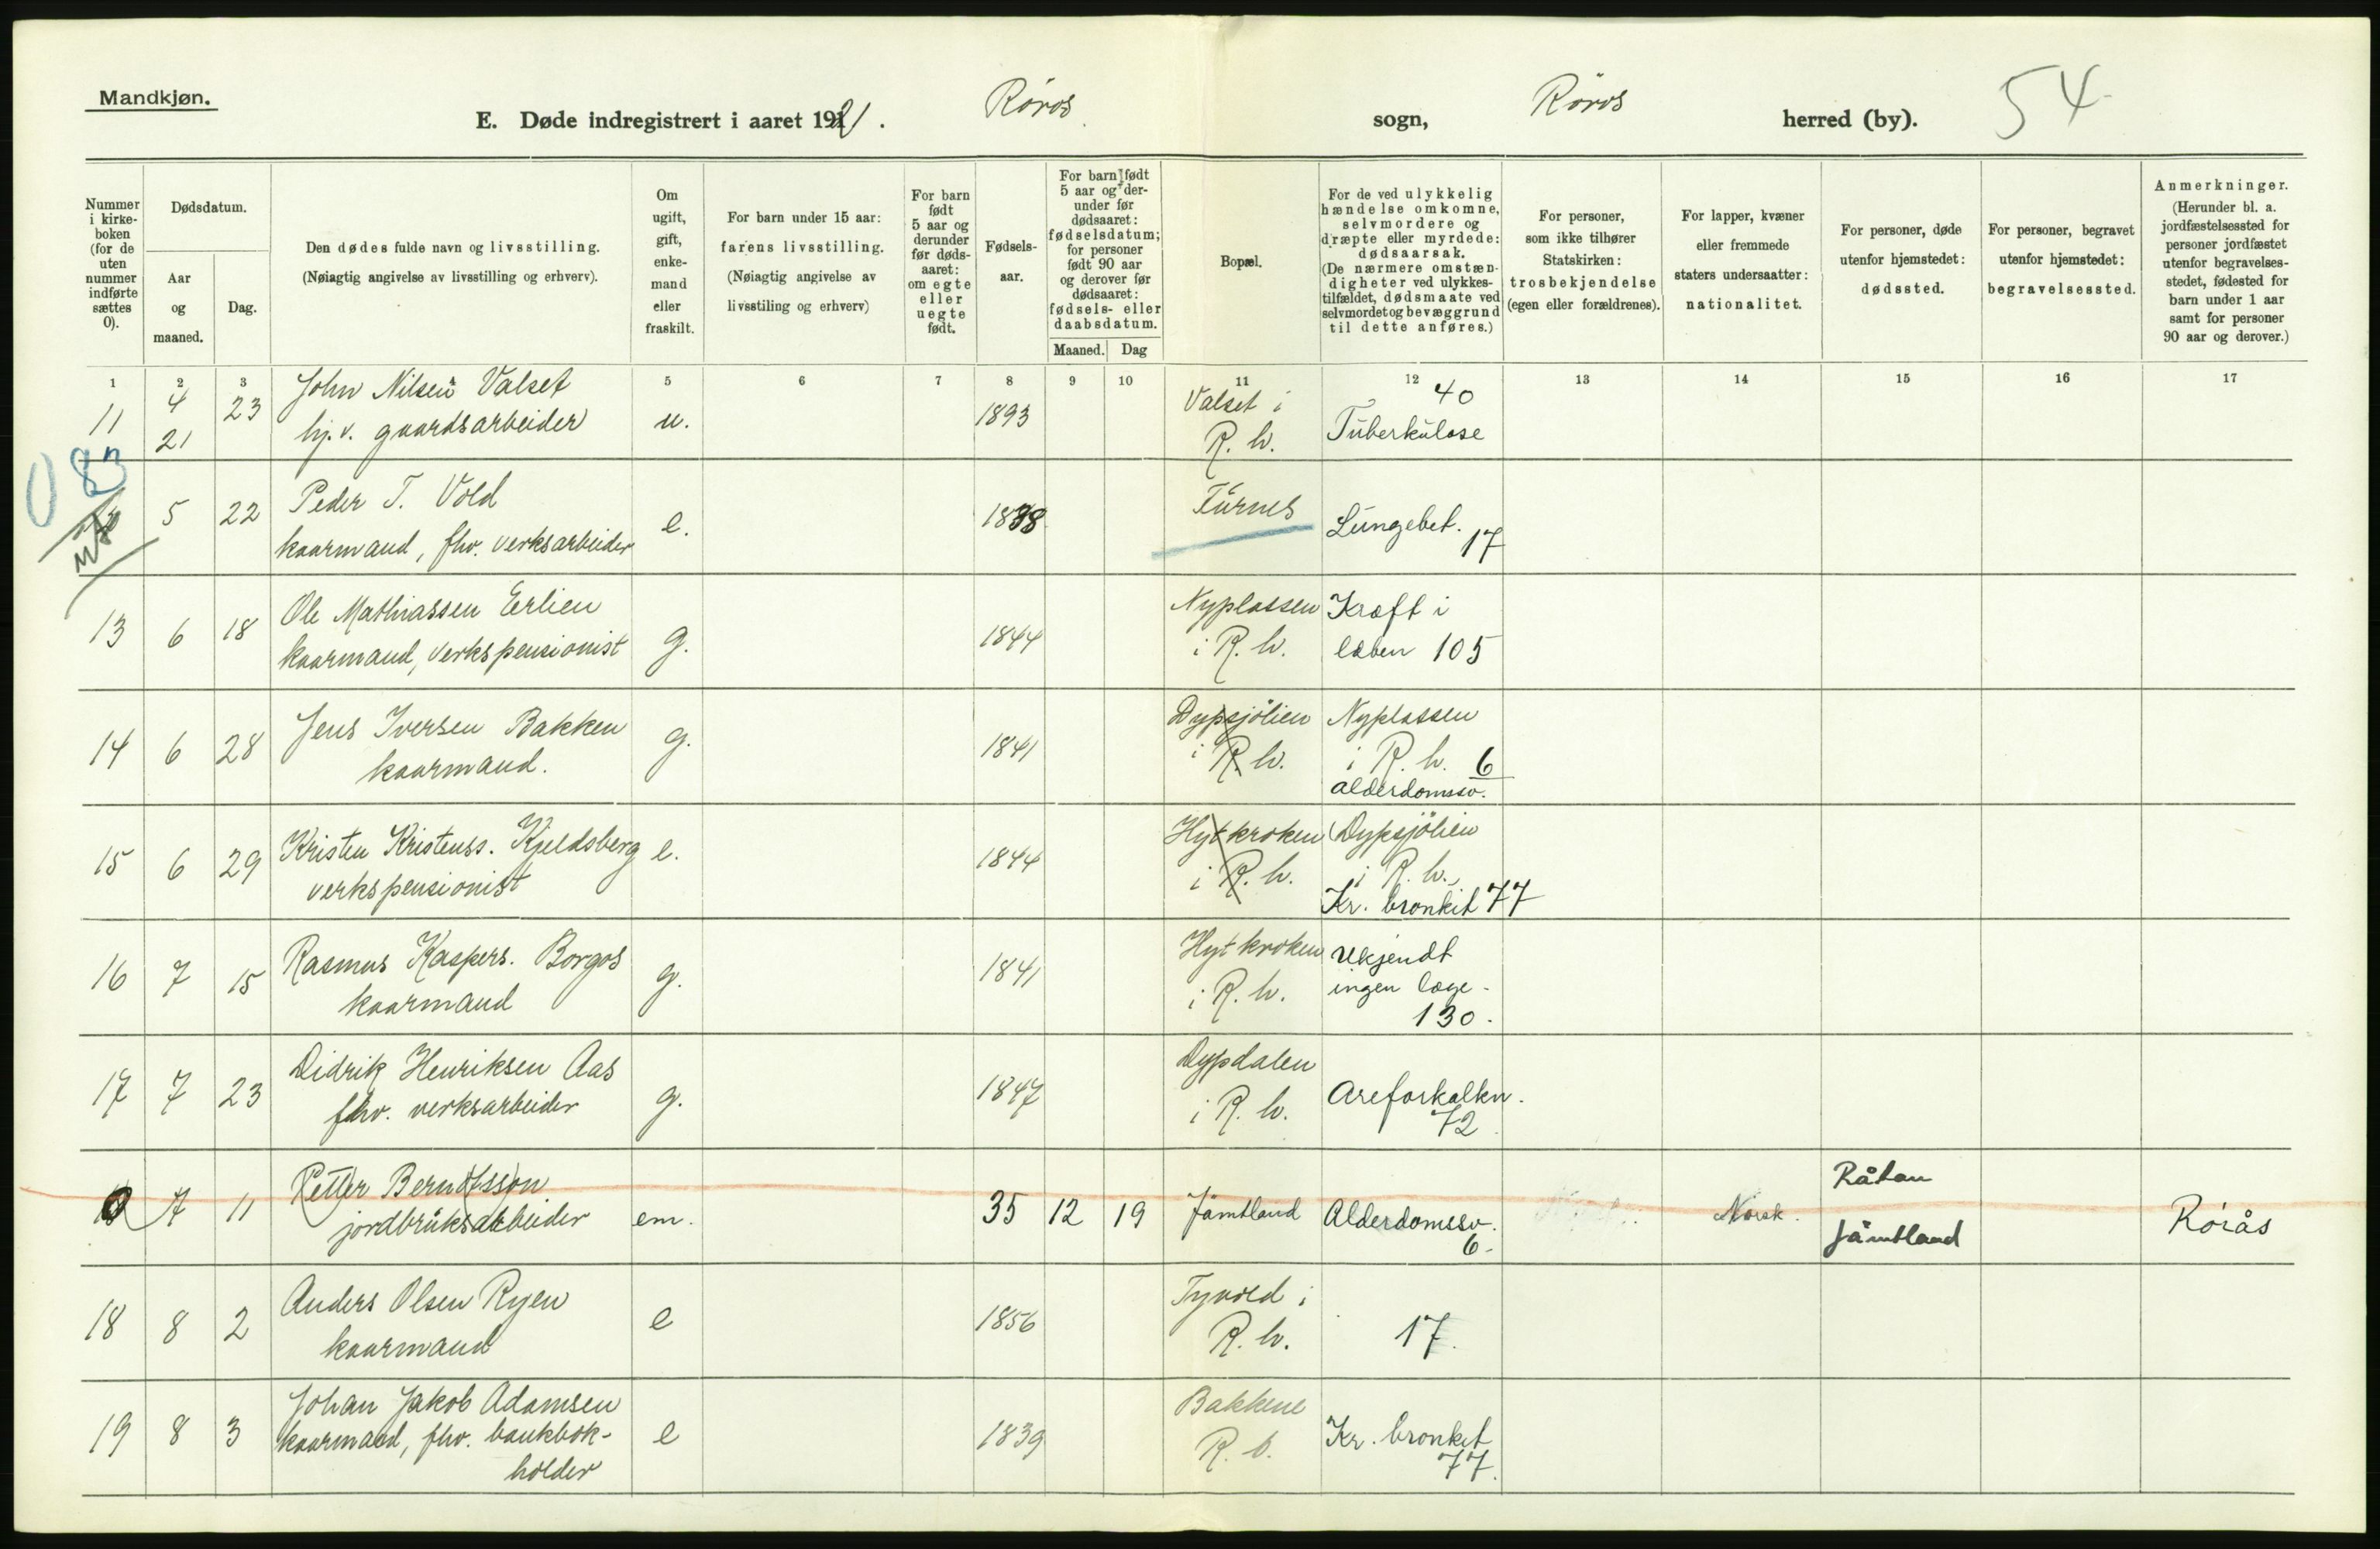 Mandkjøn.
E. Døde indregistrert i aaret 1921. Røros sogn, Røros herred (by). 54
Nummer i kirke-boken (for de uten nummer indførte sættes 0).
Dødsdatum.
Aar og maaned.
Dag.
Den dødes fulde navn og livsstilling.
(Nøiagtig angivelse av livsstilling og erhverv).
Om ugift, gift, enke-mand eller fraskilt.
For barn under 15 aar:
farens livsstilling.
(Nøiagtig angivelse av livsstiling og erhverv)
For barn født 5 aar og derunder før døds-aaret: om egte eller uegte født.
Fødsels-aar.
For barn født 5 aar og der-under før dødsaaret: fødselsdatum; for personer født 90 aar og derover før dødsaaret: fødsels- eller daabsdatum.
Maaned. Dag
Bopæl.
For de ved ulykkelig hændelse omkomne, selvmordere og dræpte eller myrdede: dødsaarsak.
(De nærmere omstæn-digheter ved ulykkes-tilfældet, dødsmaate ved selvmordet og bevæggrund til dette anføres.)
For personer, som ikke tilhører Statskirken: trosbekjendelse (egen eller forældrenes).
For lapper, kvæner eller fremmede staters undersaatter: nationalitet.
For personer, døde utenfor hjemstedet: dødssted.
For personer, begravet utenfor hjemstedet: begravelsessted.
Anmerkninger.
(Herunder bl. a. jordfæstelsessted for personer jordfæstet utenfor begravelses-stedet, fødested for barn under 1 aar samt for personer 90 aar og derover.)
1 2 3 5 6 7 8 9 10 11 12 13 14 15 16 17
11 4 21 23 John Nilsen Valset
hj. v. gaardsarbeider u. 1893 Valset i
R. h. Tuberkulose 40
5 22 Peder T. Vold
kaarmand, fhv. verksarbeider e. 1838 Furnes Lungebet. 17
13 6 18 Ole Mathiassen Erlien
kaarmand, verkspensionist g. 1844 Nyplassen
i R. h. Kræft i
læben 105
14 6 28 Jens Iversen Bakken
kaarmand. g. 1841 Dypsjølien
i R. h. Nyplassen
i R. h. 6
alderdomssv.
15 6 29 Kristen Kristenss. Kjeldsberg
verkspensionist e. 1844 Hytkroken
i R. h. Dypsjølien
i R. h.,
Kr. bronkit 77
16 7 15 Rasmus Kaspers. Borgos
kaarmand g. 1841 Hytkroken
i R. h. Ukjendt
ingen læge -
130.
17 7 23 Didrik Henriksen Aas
fhv. verksarbeider g. 1847 Dypdalen
i R. h. Areforkalkn.
72
0 7 11 Petter Berndtsson
jordbruksarbeider em. 35 12 19 Jämtland Alderdomssv.
6. Norsk. Råtan
Jämtland Rörås
18 8 2 Anders Olsen Ryen
kaarmand e 1856 Tyvold i
R. h. 17.
19 8 3 Johan Jakob Adamsen
kaarmand, fhv. bankbok-
holder e 1839 Bakkene
R. b. Kr. bronkit
77.